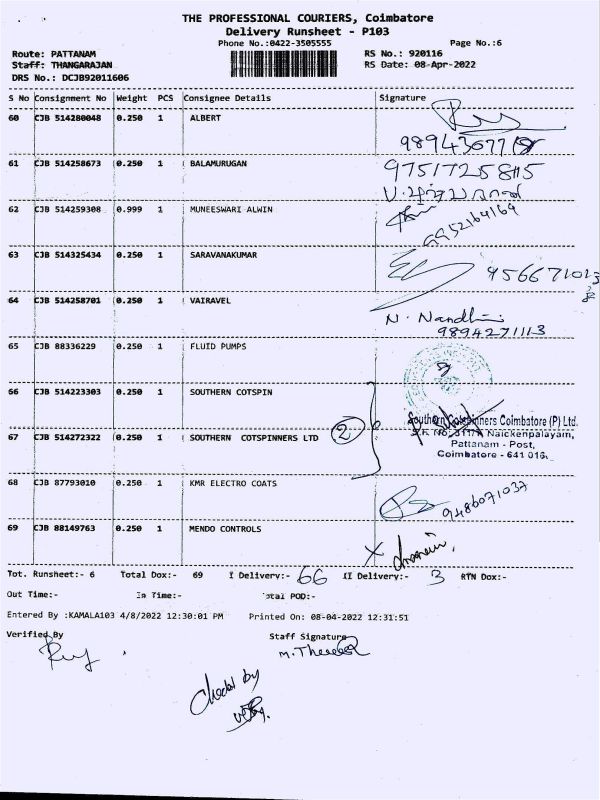 THE PROFESSIONAL COURIERS, Coimbatore
Delivery Runsheet - P103
Phone No.:0422-3505555 Page No.:6
Route: PATTANAM RS No.: 920116
Staff: THANGARAJAN RS Date: 08-Apr-2022
DRS No.: DCJB92011606
S No Consignment No Weight PCS Consignee Details Signature
60 CJB 514280048 0.250 1 ALBERT
61 CJB 514258673 0.250 1 BALAMURUGAN
9751725845
62 CJB 514259308 0.999 1 MUNEESWARI ALWIN
63 CJB 514325434 0.250 1 SARAVANAKUMAR
64 CJB 514258701 0.250 1 VAIRAVEL
N. Nandhini
9894271113
65 CJB 88336229 0.250 1 FLUID PUMPS
66 CJB 514223303 0.250 1 SOUTHERN COTSPIN
Southern Cotspinners Coimbatore (P) Ltd.
67 CJB 514272322 0.250 1 SOUTHERN COTSPINNERS LTD 2
Naickenpalayam,
Pattanam - Post,
Coimbatore - 641 016.
68 CJB 87793010 0.250 1 KMR ELECTRO COATS 9486071037
69 CJB 88149763 0.250 1 MENDO CONTROLS
Tot. Runsheet:- 6 Total Dox:- 69 I Delivery:- 66 II Delivery:- 3 RTN Dox:-
Out Time:- In Time:- Total POD:-
Entered By :KAMALA103 4/8/2022 12:30:01 PM Printed On: 08-04-2022 12:31:51
Verified By Staff Signature